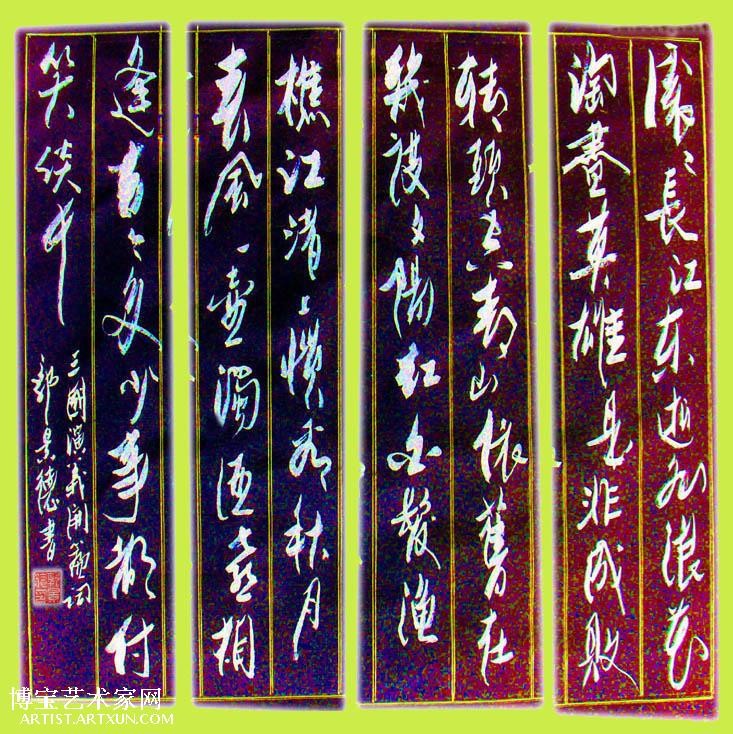 滚滚長江东逝水浪花
淘盡英雄是非成敗
转頭空青山依舊在
幾度夕陽红白髮渔
樵江渚上慣看秋月
春风一壶濁酒喜相
逢古今多少事都付
笑谈中
三國演義開篇词
景德書
博宝艺术家网
ARTIST.ARTXUN.COM